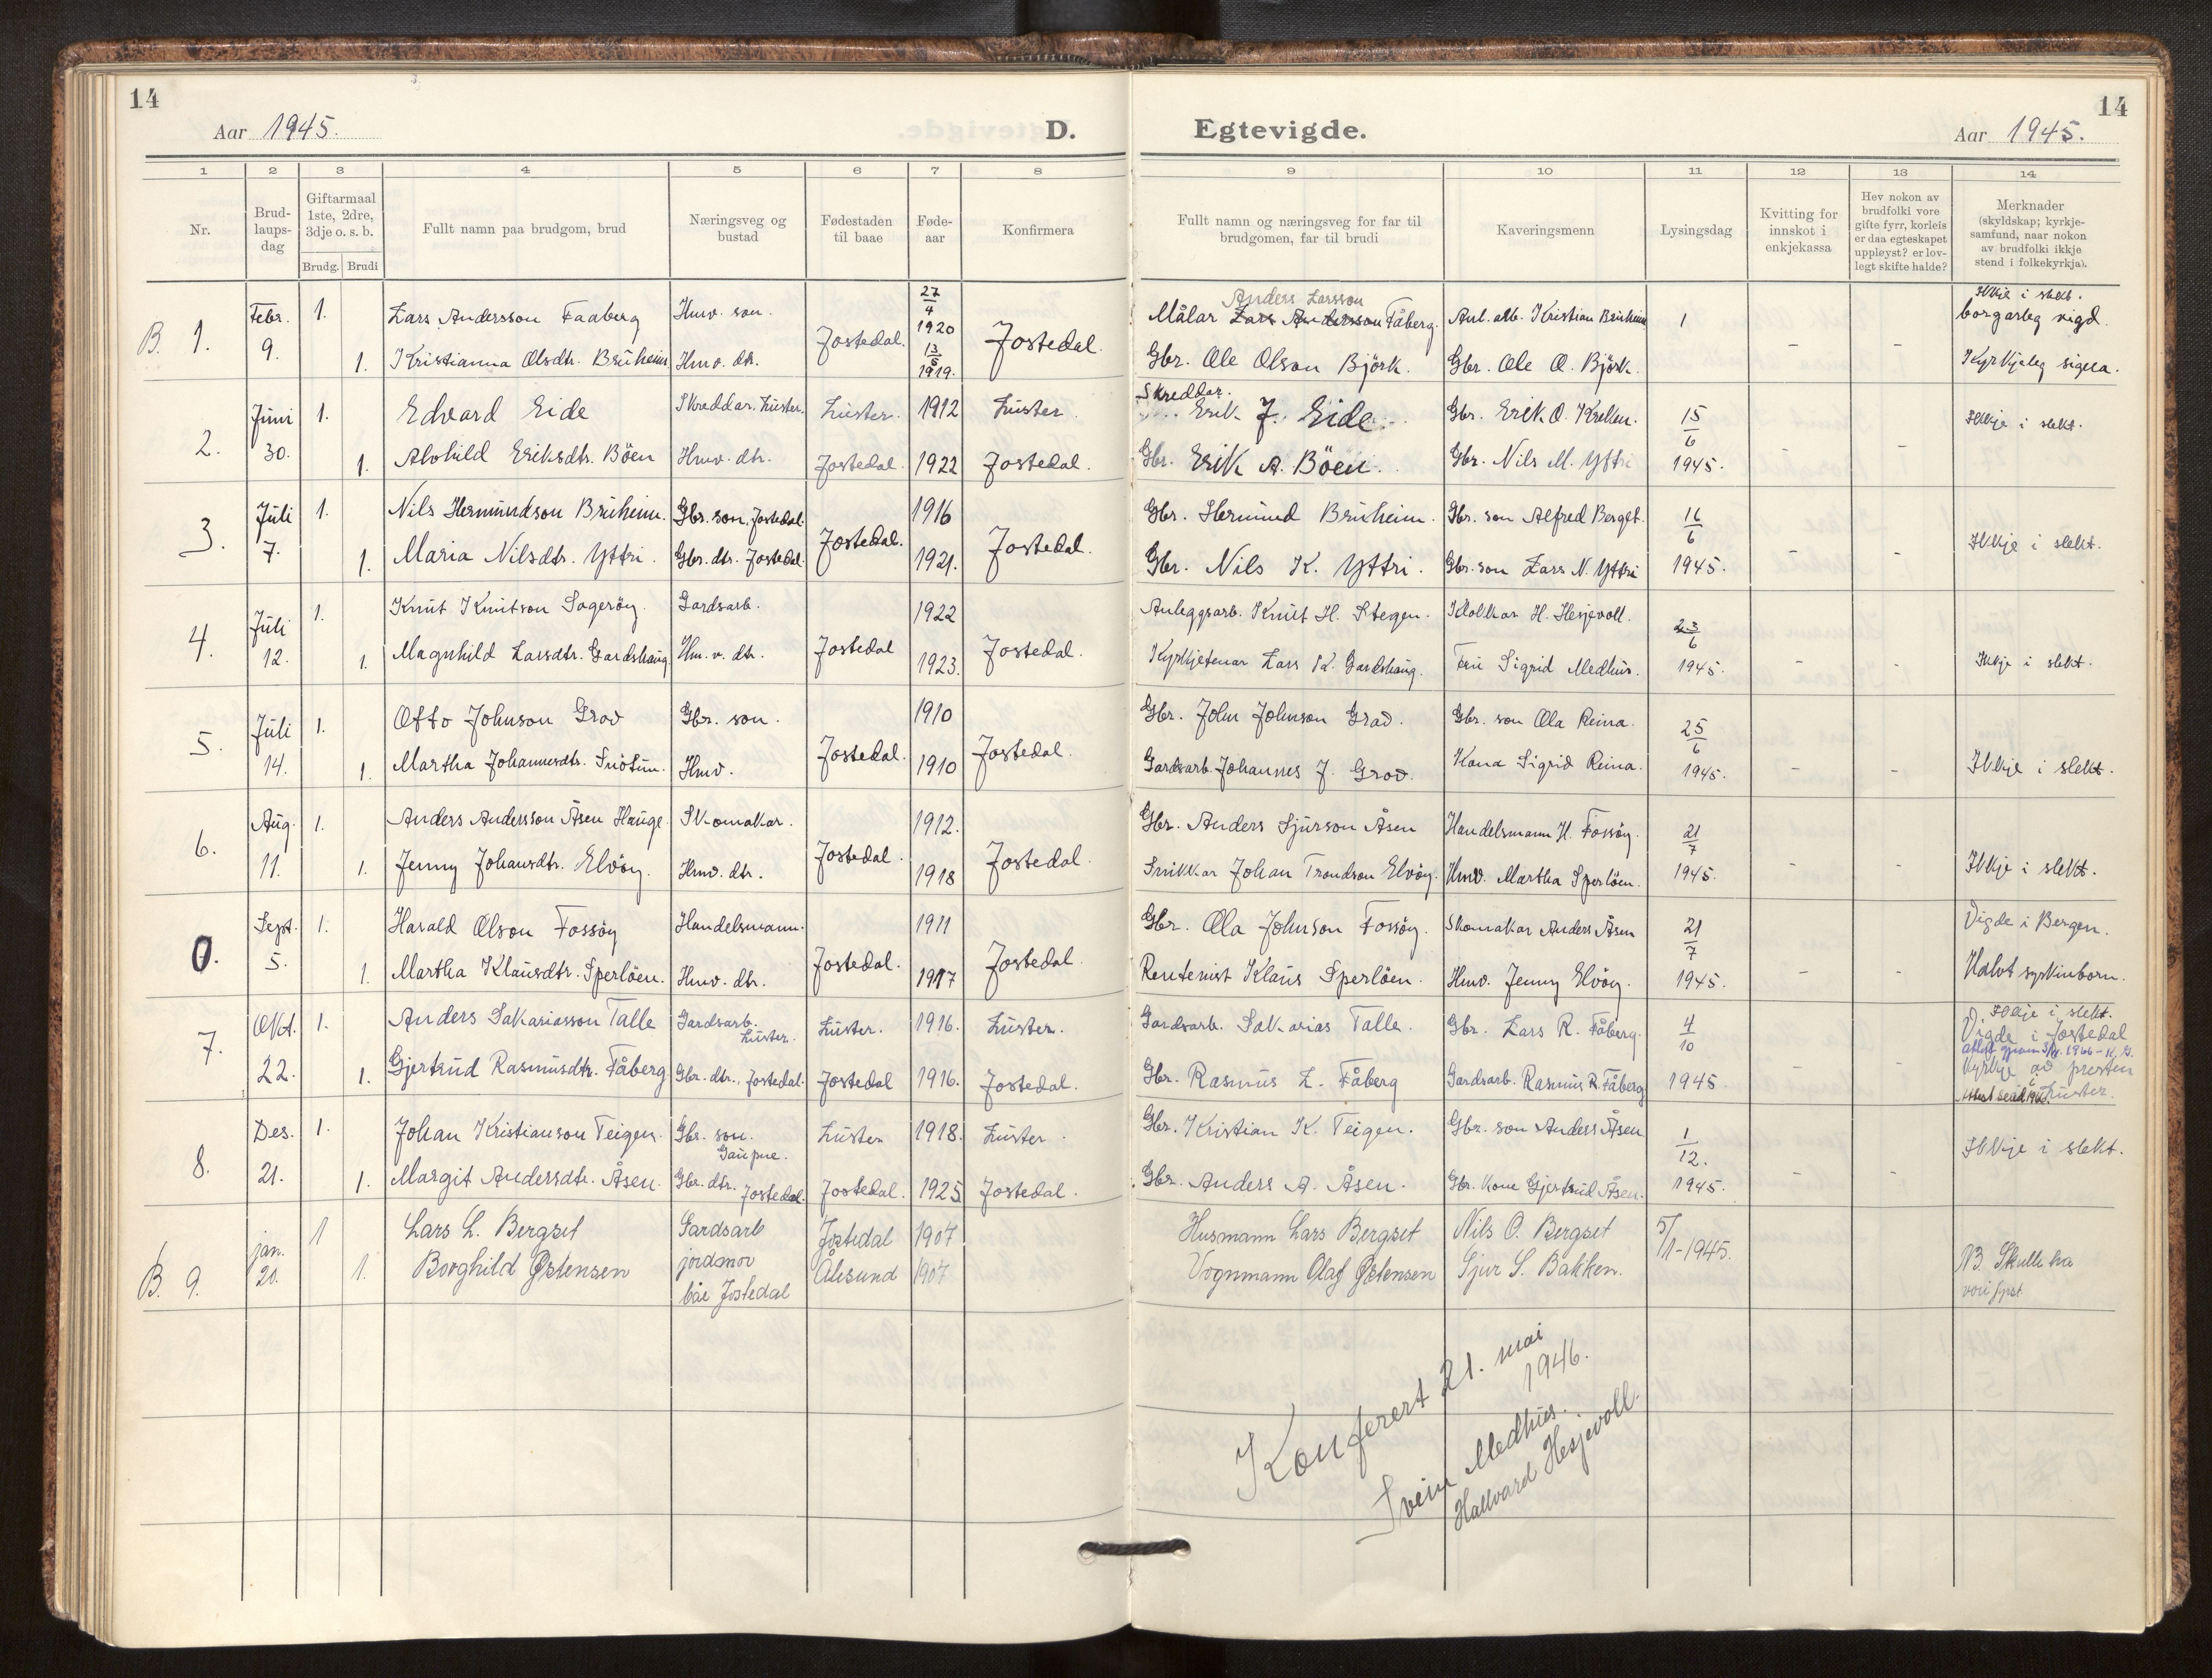 14
Aar 1945.
D.
1 2 3 4 5 6 7 8
Nr.
Brud-
laups-
dag
Giftarmaal
1ste, 2dre,
3dje o. s. b.
Brudg. Brudi
Fullt namn paa brudgom, brud
Næringsveg og
bustad
Fødestaden
til baae
Føde-
aar
Konfirmera
B. 1. Febr. 9. 1. Lars Andersson Faaberg Hmv. son. Jostedal. 27/4 1920 Jostedal.
1. Kristianna Olsdtr. Bruheim Hmv. dtr. 13/5 1919.
2. Juni 30. 1. Edvard Eide Skreddar. Luster. Luster. 1912 Luster
1. Alvhild Eriksdtr. Böen Hmv. dtr. Jostedal. 1922 Jostedal.
3. Juli 7. 1. Nils Hermundson Bruheim. Gbr. son, Jostedal. Jostedal. 1916 Jostedal.
1. Maria Nilsdtr. Yttri. Gbr. dtr. Jostedal. 1921.
4. Juli 12. 1. Knut Knutson Sagerøy. Gardsarb. Jostedal 1922 Jostedal.
1. Magnhild Larsdtr. Gardshaug Hm. v. dtr. 1923.
5. Juli 14. 1. Otto Johnson Grov Gbr. son. Jostedal. 1910 Jostedal.
1. Martha Johannesdtr. Snøtun. Hmv. 1910
6. Aug. 11. 1. Anders Andersson Åsen Hauge. Skomakar. Jostedal. 1912. Jostedal.
1. Jenny Johansdtr. Elvöy. Hmv. dtr. 1918
0. Sept. 5. 1. Harald Olson Fossöy Handelsmann. Jostedal. 1911 Jostedal.
1. Martha Klausdtr. Sperlöen. Hmv. dtr. 1917
7. Okt. 22. 1. Anders Sakariasson Talle Gardsarb. Luster. Luster. 1916. Luster.
1. Gjertrud Rasmusdtr. Fåberg Gbr. dtr., Jostedal. Jostedal 1916. Jostedal.
8. Des. 21. 1. Johan Kristianson Teigen. Gbr. son. Gaupne. Luster 1918. Luster.
1. Margit Andersdtr. Åsen. Gbr. dtr. Jostedal. Jostedal. 1925. Jostedal.
B. 9. jan. 20. 1 Lars L. Bergset Gardsarb Jostedal 1907
1. Borghild Østensen jordmor Ålesund 1907
bae Jostedal
14
Egtevigde.
Aar 1945.
9 10 11 12 13 14
Fullt namn og næringsveg for far til
brudgomen, far til brudi
Kaveringsmenn
Lysingsdag
Kvitting for
innskot i
enkjekassa
Hev nokon av
brudfolki vore
gifte fyrr, korleis
er daa egteskapet
uppløyst? er lov-
legt skifte halde?
Merknader
(skyldskap; kyrkje-
samfund, naar nokon
av brudfolki ikkje
stend i folkekyrkja).
Anders Larsson
Målar Lars Andersson Fåberg. Anl. arb. Kristian Bruheim 1 - - Ikkje i slekt. borgarleg vigd.
Gbr. Ole Olson Björk. Gbr. Ole O. Björk. Kyrkjeleg signa.
Skreddar.
Erik J. Eide. Gbr. Erik O. Krellen. 15/6 1945. Ikkje i slekt.
Gbr. Erik A. Böen. Gbr. Nils M. Yttri - -
Gbr. Hermund Bruheim. Gbr. son Alfred Berget. 16/6 1945. - - Ikkje i slekt.
Gbr. Nils K. Yttri. Gbr. son Lars N. Yttri
Anleggsarb. Knut H. Stegen. Klokkar H. Hesjevoll. 23/6 1945. - - Ikkje i slekt.
Kyrkjetenar Lars K. Gardshaug. Fru Sigrid Medhus.
Gbr. John Johnson Grov. Gbr. son Ola Reina. 25/6 1945. - - Ikkje i slekt.
Gardsarb. Johannes J. Grov. Kona Sigrid Reina.
Gbr. Anders Sjurson Åsen Handelsmann H. Fossöy. 21/7 1945. - - Ikkje i slekt.
Snikkar Johan Trondson Elvöy. Hmv. Martha Sperlöen.
Gbr. Ola Johnson Fossöy. Skomakar Anders Åsen 21/7 1945. - - Vigde i Bergen.
Rentenist Klaus Sperlöen. Hmv. Jenny Elvöy. Halvt syskinborn.
Gardsarb. Sakarias Talle. Gbr. Lars R. Fåberg. 4/10 1945 - Ikkje i slekt.
Vigde i Jostedal
Gbr. Rasmus L. Fåberg Gardsarb. Rasmus R. Fåberg kyrkje av presten
i Luster.
Gbr. Kristian K. Teigen. Gbr. son Anders Åsen 1/12. 1945. - - Ikkje i slekt.
Gbr. Anders A. Åsen. Gbr. kone Gjertrud Åsen.
Husmann Lars Bergset Nils O. Bergset 5/1-1945. NB. Skulle ha
Vognmann Olaf Østensen Sjur S. Bakken. vori fyrst
Konferert 21. mai
1946.
Svein Medhus.
Hallvard Hesjevoll.